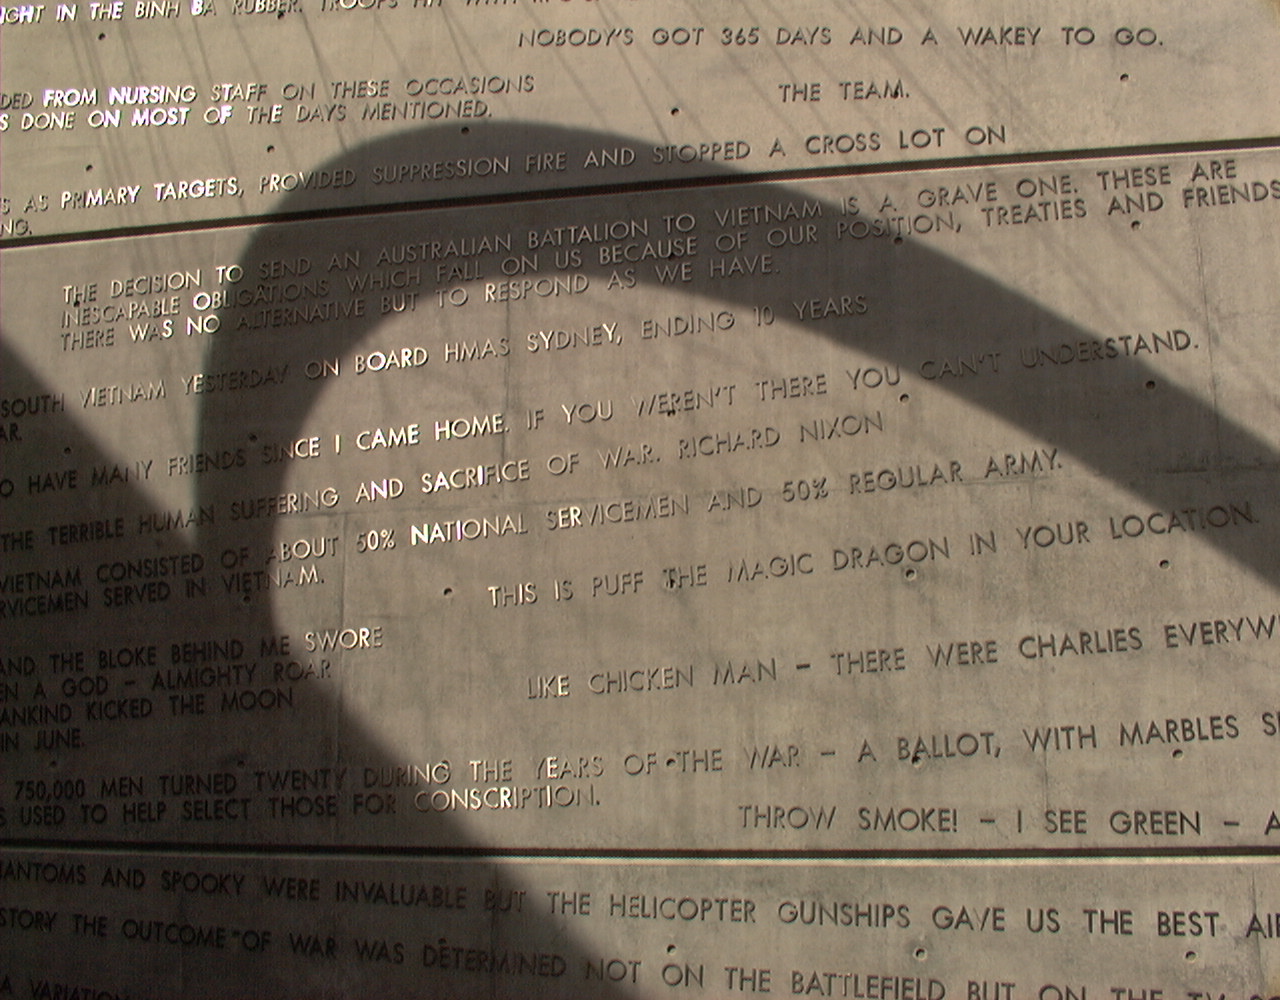 IGHT IN THE BINH BA RUBBER. TROOPS HIT WITH
NOBODY'S GOT 365 DAYS AND A WAKEY TO GO.
DED FROM NURSING STAFF ON THESE OCCASIONS
S DONE ON MOST OF THE DAYS MENTIONED.
THE TEAM.
S AS PRIMARY TARGETS, PROVIDED SUPPRESSION FIRE AND STOPPED A CROSS LOT ON
NG.
THE DECISION TO SEND AN AUSTRALIAN BATTALION TO VIETNAM IS A GRAVE ONE. THESE ARE
INESCAPABLE OBLIGATIONS WHICH FALL ON US BECAUSE OF OUR POSITION, TREATIES AND FRIENDS
THERE WAS NO ALTERNATIVE BUT TO RESPOND AS WE HAVE.
SOUTH VIETNAM YESTERDAY ON BOARD HMAS SYDNEY, ENDING 10 YEARS
AR.
O HAVE MANY FRIENDS SINCE I CAME HOME. IF YOU WEREN'T THERE YOU CAN'T UNDERSTAND.
THE TERRIBLE HUMAN SUFFERING AND SACRIFICE OF WAR. RICHARD NIXON
VIETNAM CONSISTED OF ABOUT 50% NATIONAL SERVICEMEN AND 50% REGULAR ARMY.
RVICEMEN SERVED IN VIETNAM.
THIS IS PUFF THE MAGIC DRAGON IN YOUR LOCATION.
AND THE BLOKE BEHIND ME SWORE
EN A GOD – ALMIGHTY ROAR
ANKIND KICKED THE MOON
IN JUNE.
LIKE CHICKEN MAN – THERE WERE CHARLIES EVERYW
750,000 MEN TURNED TWENTY DURING THE YEARS OF THE WAR – A BALLOT, WITH MARBLES S
S USED TO HELP SELECT THOSE FOR CONSCRIPTION.
THROW SMOKE! – I SEE GREEN – A
HANTOMS AND SPOOKY WERE INVALUABLE BUT THE HELICOPTER GUNSHIPS GAVE US THE BEST AIR
STORY THE OUTCOME OF WAR WAS DETERMINED NOT ON THE BATTLEFIELD BUT ON THE TV
A VARIATION